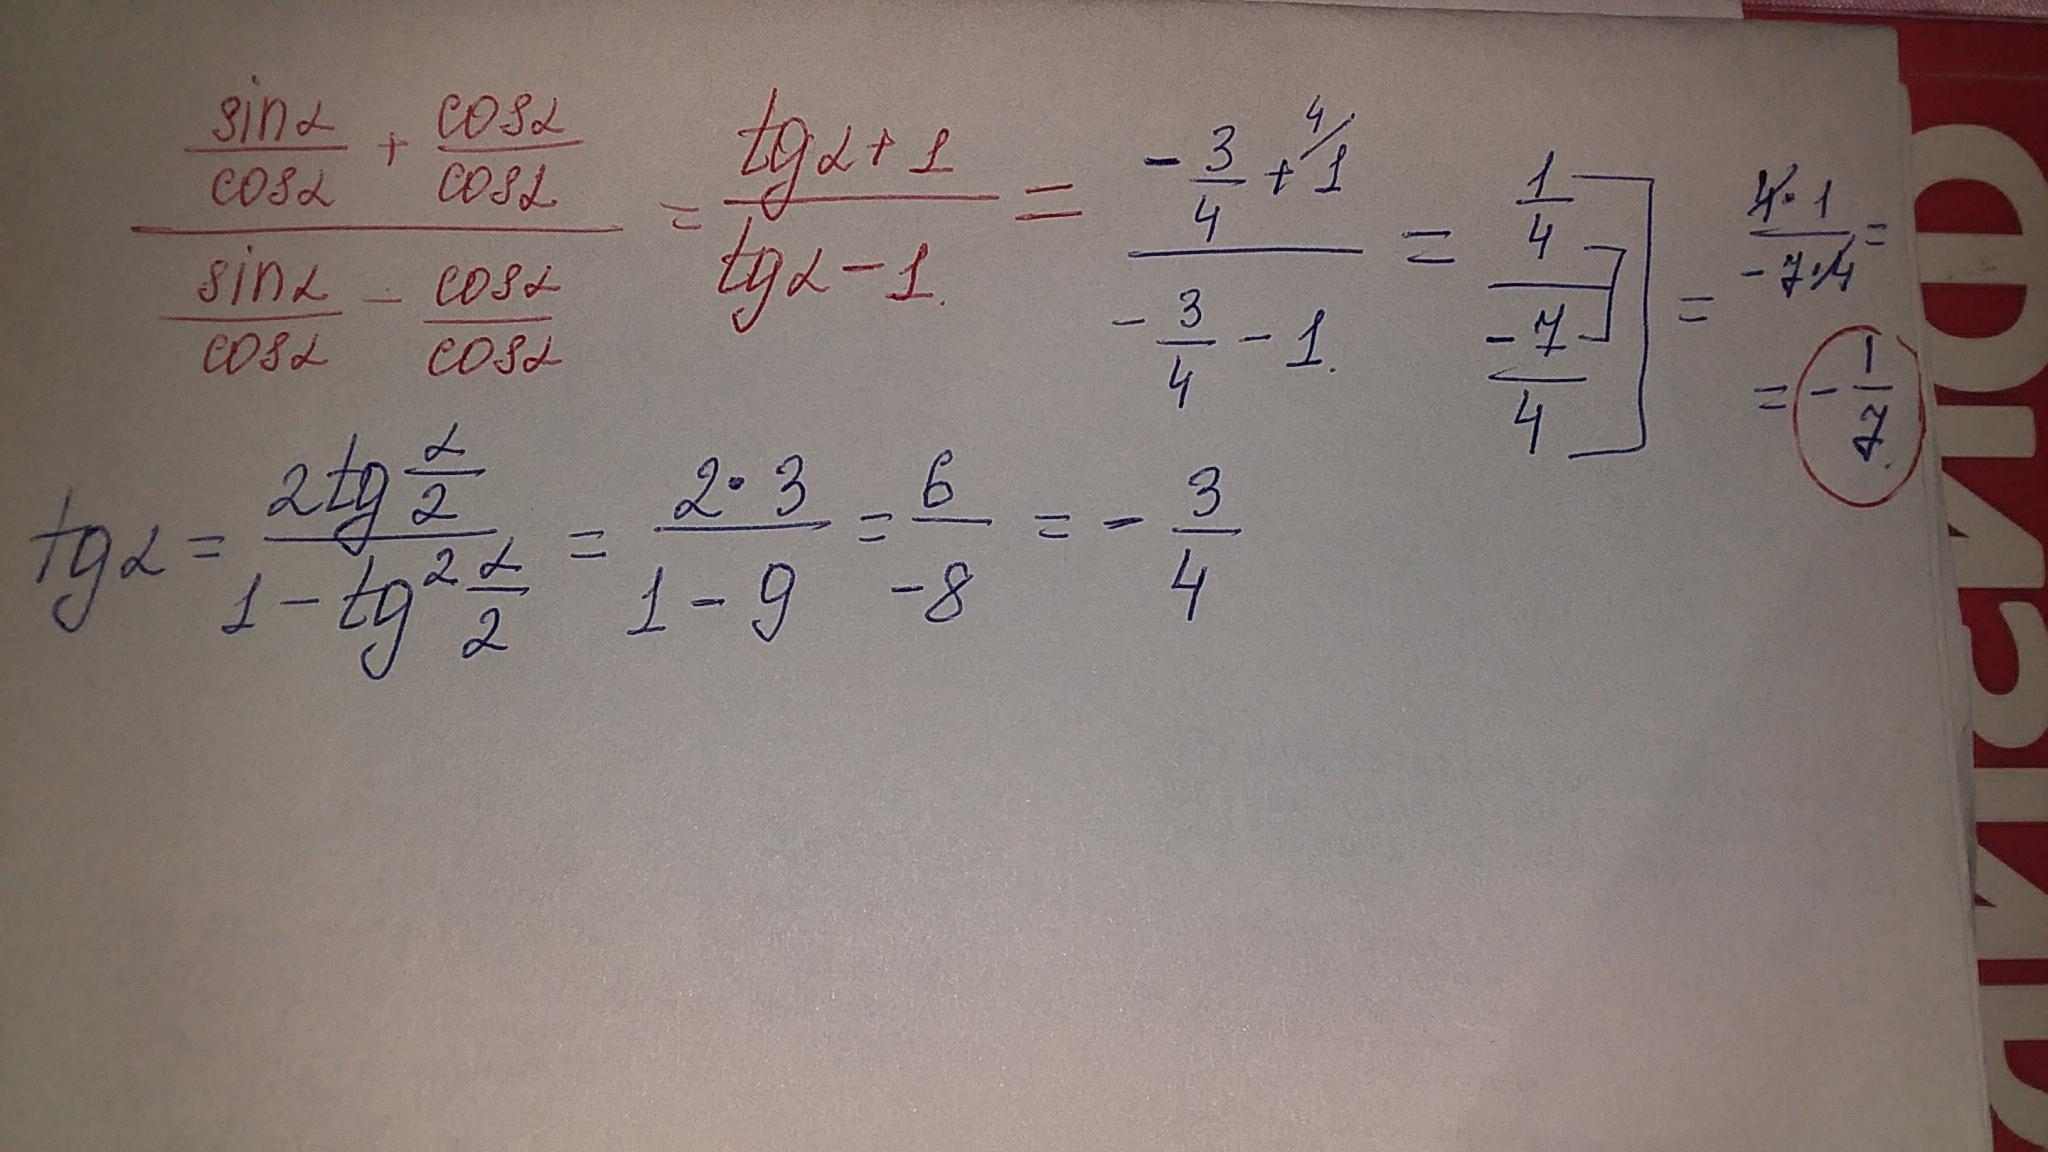 sinα/cosα + cosα/cosα / sinα/cosα - cosα/cosα = tgα + 1 / tgα - 1. = - 3/4 + 1 4/ / - 3/4 - 1. = 1/4 / -7/4 = 4·1 / -7·4 =
= - 1/7.
tgα = 2tg α/2 / 1 - tg² α/2 = 2·3 / 1 - 9 = 6 / -8 = - 3/4